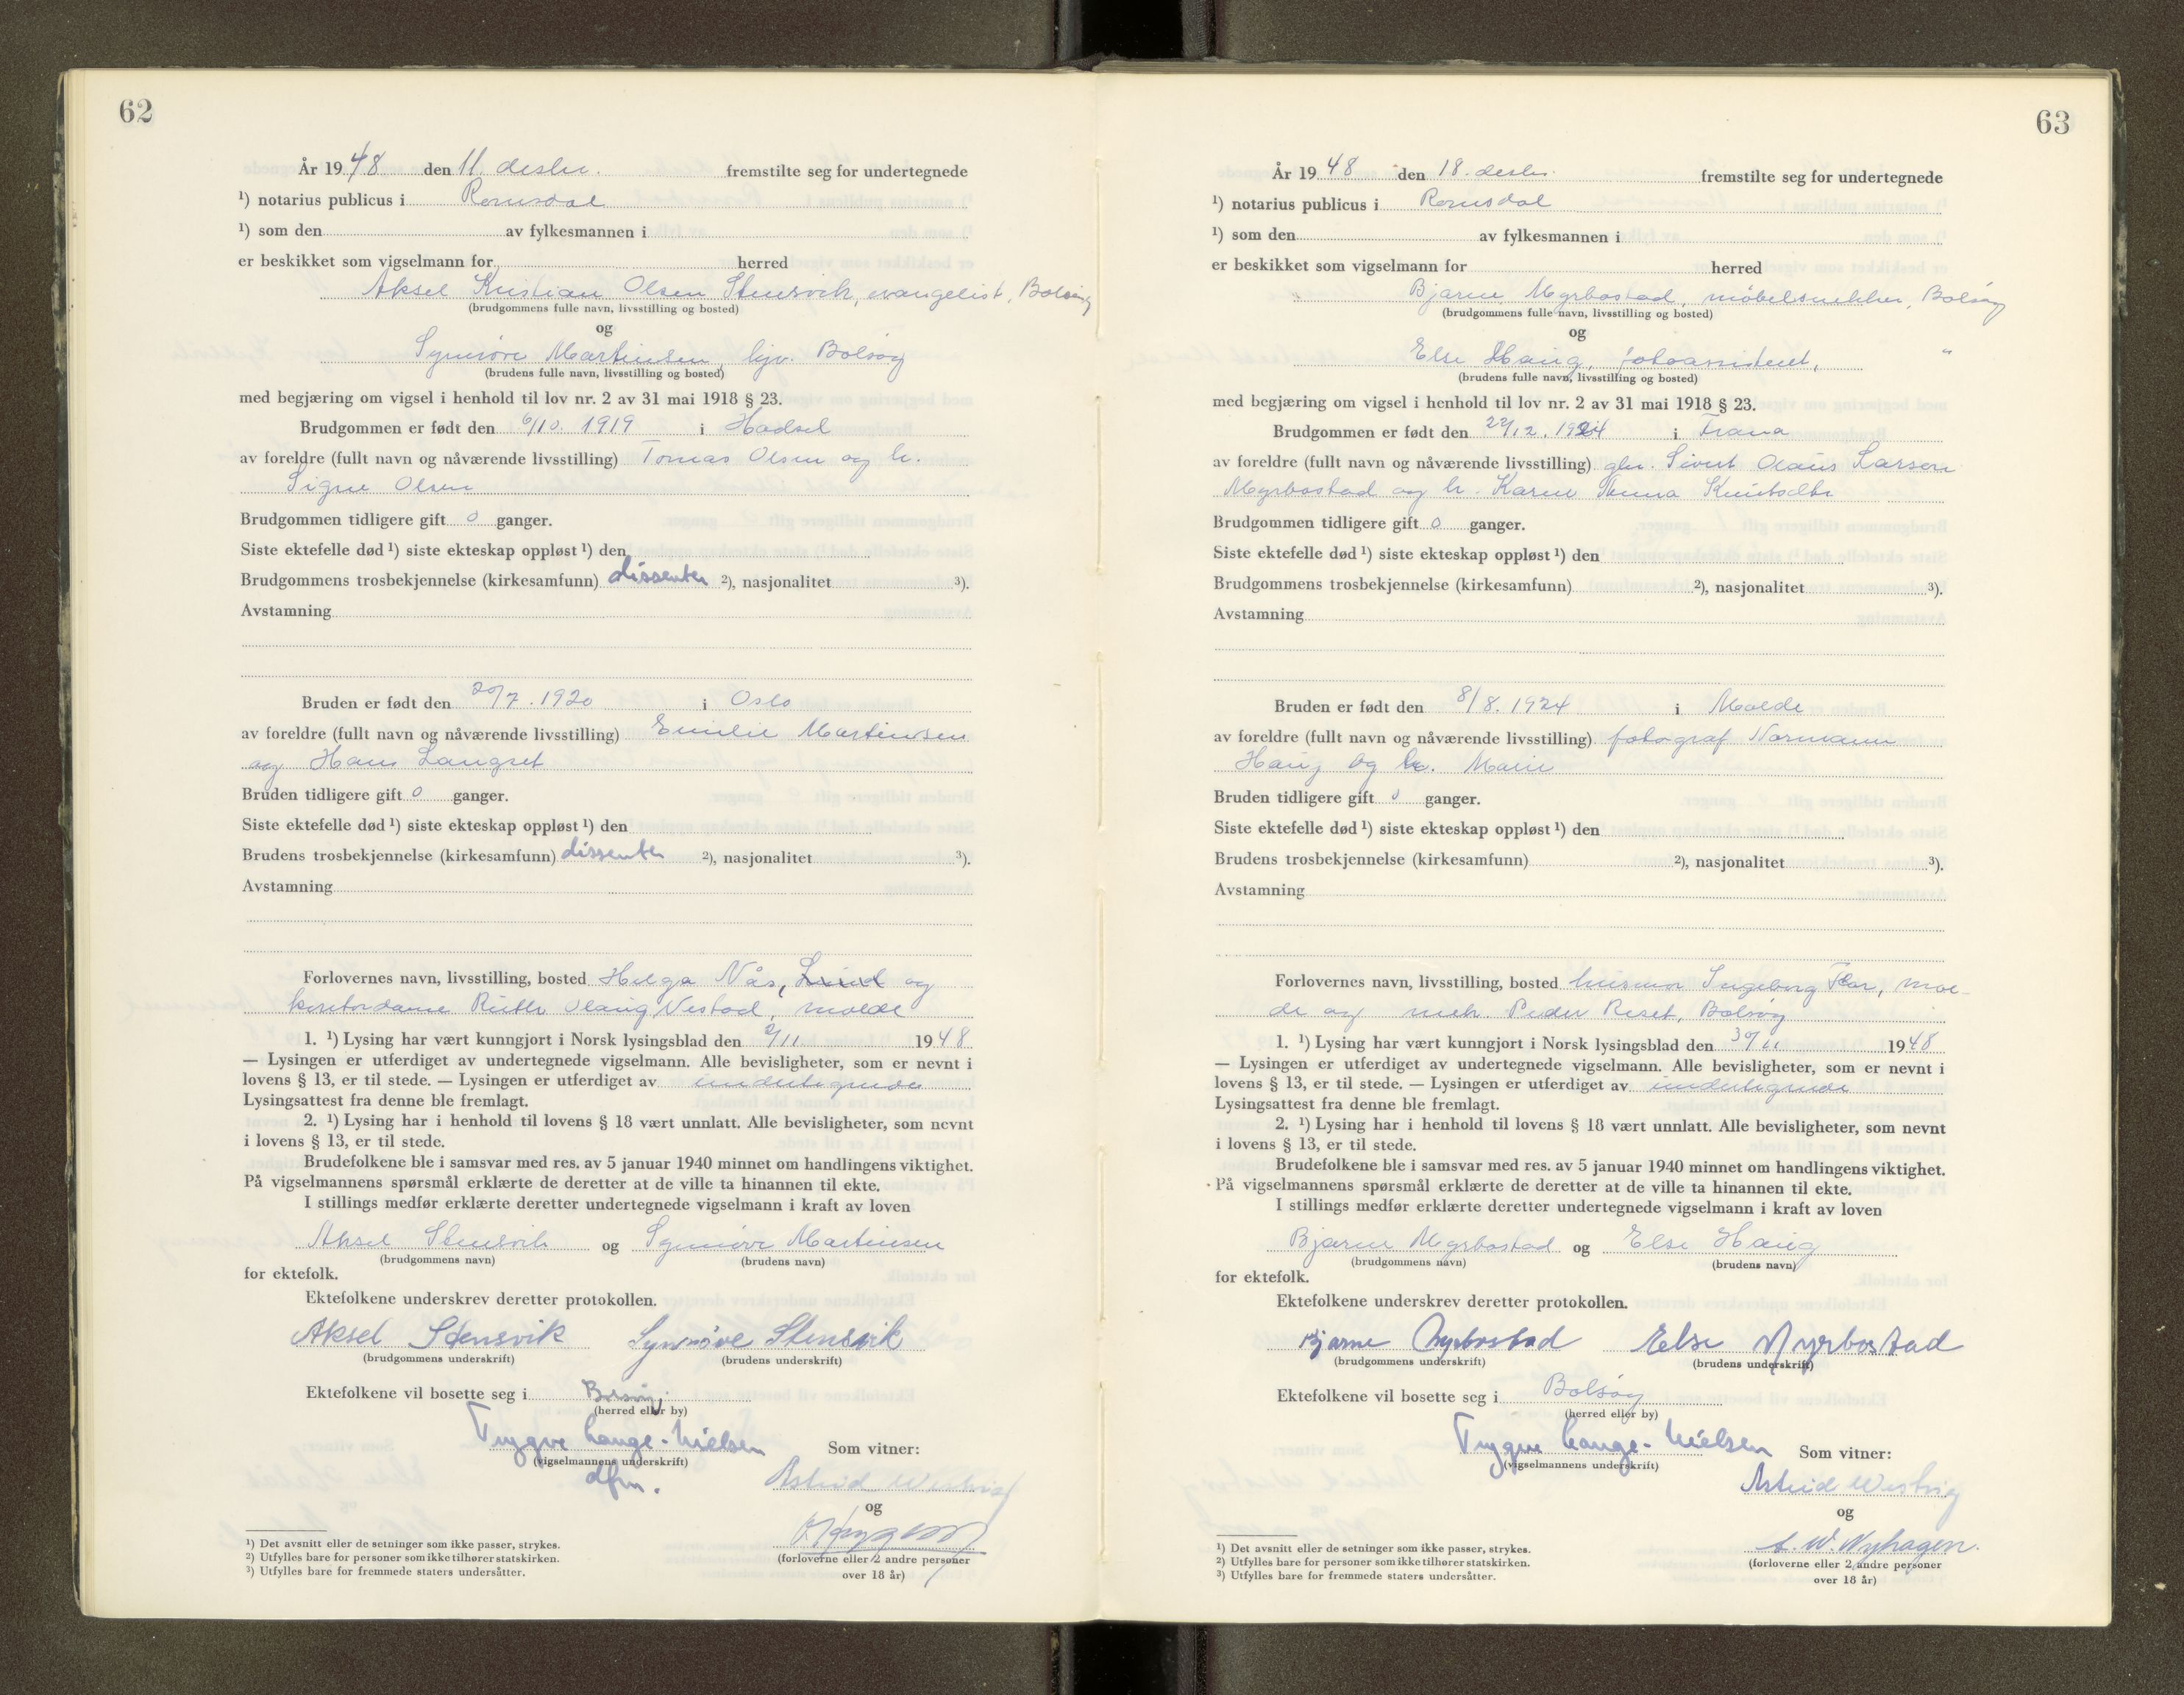 62
År 1948 den 11. desbr. fremstilte seg for undertegnede
¹) notarius publicus i Romsdal
¹) som den av fylkesmannen i
er beskikket som vigselmann for herred
Aksel Kristian Olsen Stensvik, evangelist, Bolsøy
(brudgommens fulle navn, livsstilling og bosted)
og
Synnøve Martinsen, hjv. Bolsøy
(brudens fulle navn, livsstilling og bosted)
med begjæring om vigsel i henhold til lov nr. 2 av 31 mai 1918 § 23.
Brudgommen er født den 6/10. 1919 i Hadsel
av foreldre (fullt navn og nåværende livsstilling) Tomas Olsen og h.
Signe Olsen
Brudgommen tidligere gift 0 ganger.
Siste ektefelle død ¹) siste ekteskap oppløst ¹) den
Brudgommens trosbekjennelse (kirkesamfunn) dissenter ²), nasjonalitet ³).
Avstamning
Bruden er født den 20/7. 1920 i Oslo
av foreldre (fullt navn og nåværende livsstilling) Emilie Martinsen
og Hans Langset
Bruden tidligere gift 0 ganger.
Siste ektefelle død ¹) siste ekteskap oppløst ¹) den
Brudens trosbekjennelse (kirkesamfunn) dissenter ²), nasjonalitet ³).
Avstamning
Forlovernes navn, livsstilling, bosted Helga Nås, Lund og
kontordame Ruth Olaug Vestad, Molde
1. ¹) Lysing har vært kunngjort i Norsk lysingsblad den 2/11. 1948
— Lysingen er utferdiget av undertegnede vigselmann. Alle bevisligheter, som er nevnt i
lovens § 13, er til stede. — Lysingen er utferdiget av undertegnede
Lysingsattest fra denne ble fremlagt.
2. ¹) Lysing har i henhold til lovens § 18 vært unnlatt. Alle bevisligheter, som nevnt
i lovens § 13, er til stede.
Brudefolkene ble i samsvar med res. av 5 januar 1940 minnet om handlingens viktighet.
På vigselmannens spørsmål erklærte de deretter at de ville ta hinannen til ekte.
I stillings medfør erklærte deretter undertegnede vigselmann i kraft av loven
Aksel Stensvik og Synnøve Martinsen
(brudgommens navn) (brudens navn)
for ektefolk.
Ektefolkene underskrev deretter protokollen.
Aksel Stensvik Synnøve Stensvik
(brudgommens underskrift) (brudens underskrift)
Ektefolkene vil bosette seg i Bolsøy
(herred eller by)
Trygve Lange-Nielsen
(vigselmannens underskrift) Som vitner:
dfm.
Astrid Westvig
og
(forloverne eller 2 andre personer
over 18 år)
¹) Det avsnitt eller de setninger som ikke passer, strykes.
²) Utfylles bare for personer som ikke tilhører statskirken.
³) Utfylles bare for fremmede staters undersåtter.
63
År 1948 den 18. desbr. fremstilte seg for undertegnede
¹) notarius publicus i Romsdal
¹) som den av fylkesmannen i
er beskikket som vigselmann for herred
Bjarne Myrbostad, møbelsnekker, Bolsøy
(brudgommens fulle navn, livsstilling og bosted)
og
Else Haug, fotoassistent, "
(brudens fulle navn, livsstilling og bosted)
med begjæring om vigsel i henhold til lov nr. 2 av 31 mai 1918 § 23.
Brudgommen er født den 22/12. 1924 i Fræna
av foreldre (fullt navn og nåværende livsstilling) gbr. Sivert Olaus Larsen
Myrbostad og h. Karen Anna Knutsdtr
Brudgommen tidligere gift 0 ganger.
Siste ektefelle død ¹) siste ekteskap oppløst ¹) den
Brudgommens trosbekjennelse (kirkesamfunn) ²), nasjonalitet ³).
Avstamning
Bruden er født den 8/8. 1924 i Molde
av foreldre (fullt navn og nåværende livsstilling) fotograf Normann
Haug og h. Marie
Bruden tidligere gift 0 ganger.
Siste ektefelle død ¹) siste ekteskap oppløst ¹) den
Brudens trosbekjennelse (kirkesamfunn) ²), nasjonalitet ³).
Avstamning
Forlovernes navn, livsstilling, bosted husmor Ingeborg Flor, Mol-
de og mek. Peder Reset, Bolsøy
1. ¹) Lysing har vært kunngjort i Norsk lysingsblad den 30/11 1948
— Lysingen er utferdiget av undertegnede vigselmann. Alle bevisligheter, som er nevnt i
lovens § 13, er til stede. — Lysingen er utferdiget av undertegnede
Lysingsattest fra denne ble fremlagt.
2. ¹) Lysing har i henhold til lovens § 18 vært unnlatt. Alle bevisligheter, som nevnt
i lovens § 13, er til stede.
Brudefolkene ble i samsvar med res. av 5 januar 1940 minnet om handlingens viktighet.
På vigselmannens spørsmål erklærte de deretter at de ville ta hinannen til ekte.
I stillings medfør erklærte deretter undertegnede vigselmann i kraft av loven
Bjarne Myrbostad og Else Haug
(brudgommens navn) (brudens navn)
for ektefolk.
Ektefolkene underskrev deretter protokollen.
Bjarne Myrbostad Else Myrbostad
(brudgommens underskrift) (brudens underskrift)
Ektefolkene vil bosette seg i Bolsøy
(herred eller by)
Trygve Lange-Nielsen
(vigselmannens underskrift) Som vitner:
Astrid Westvig
og
A. W. Nyhagen.
(forloverne eller 2 andre personer
over 18 år)
¹) Det avsnitt eller de setninger som ikke passer, strykes.
²) Utfylles bare for personer som ikke tilhører statskirken.
³) Utfylles bare for fremmede staters undersåtter.